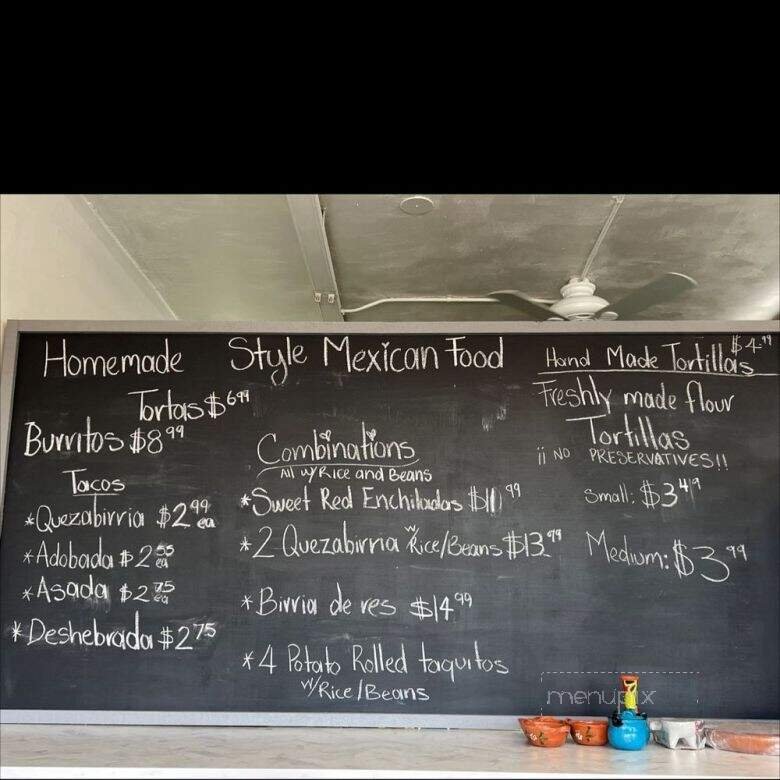 Homemade Style Mexican Food
Tortas $6.99
Burritos $8.99
Tacos
*Quezabirria $2.99 ea
*Adobada $2.55 ea
*Asada $2.75 ea
*Deshebrada $2.75
Combinations
All w/Rice and Beans
*Sweet Red Enchiladas $11.99
*2 Quezabirria w Rice/Beans $13.99
*Birria de res $14.99
*4 Potato Rolled taquitos
w/Rice/Beans
Hand Made Tortillas $4.99
Freshly made flour
Tortillas
¡¡ NO PRESERVATIVES!!
Small: $3.49
Medium: $3.99
menupix